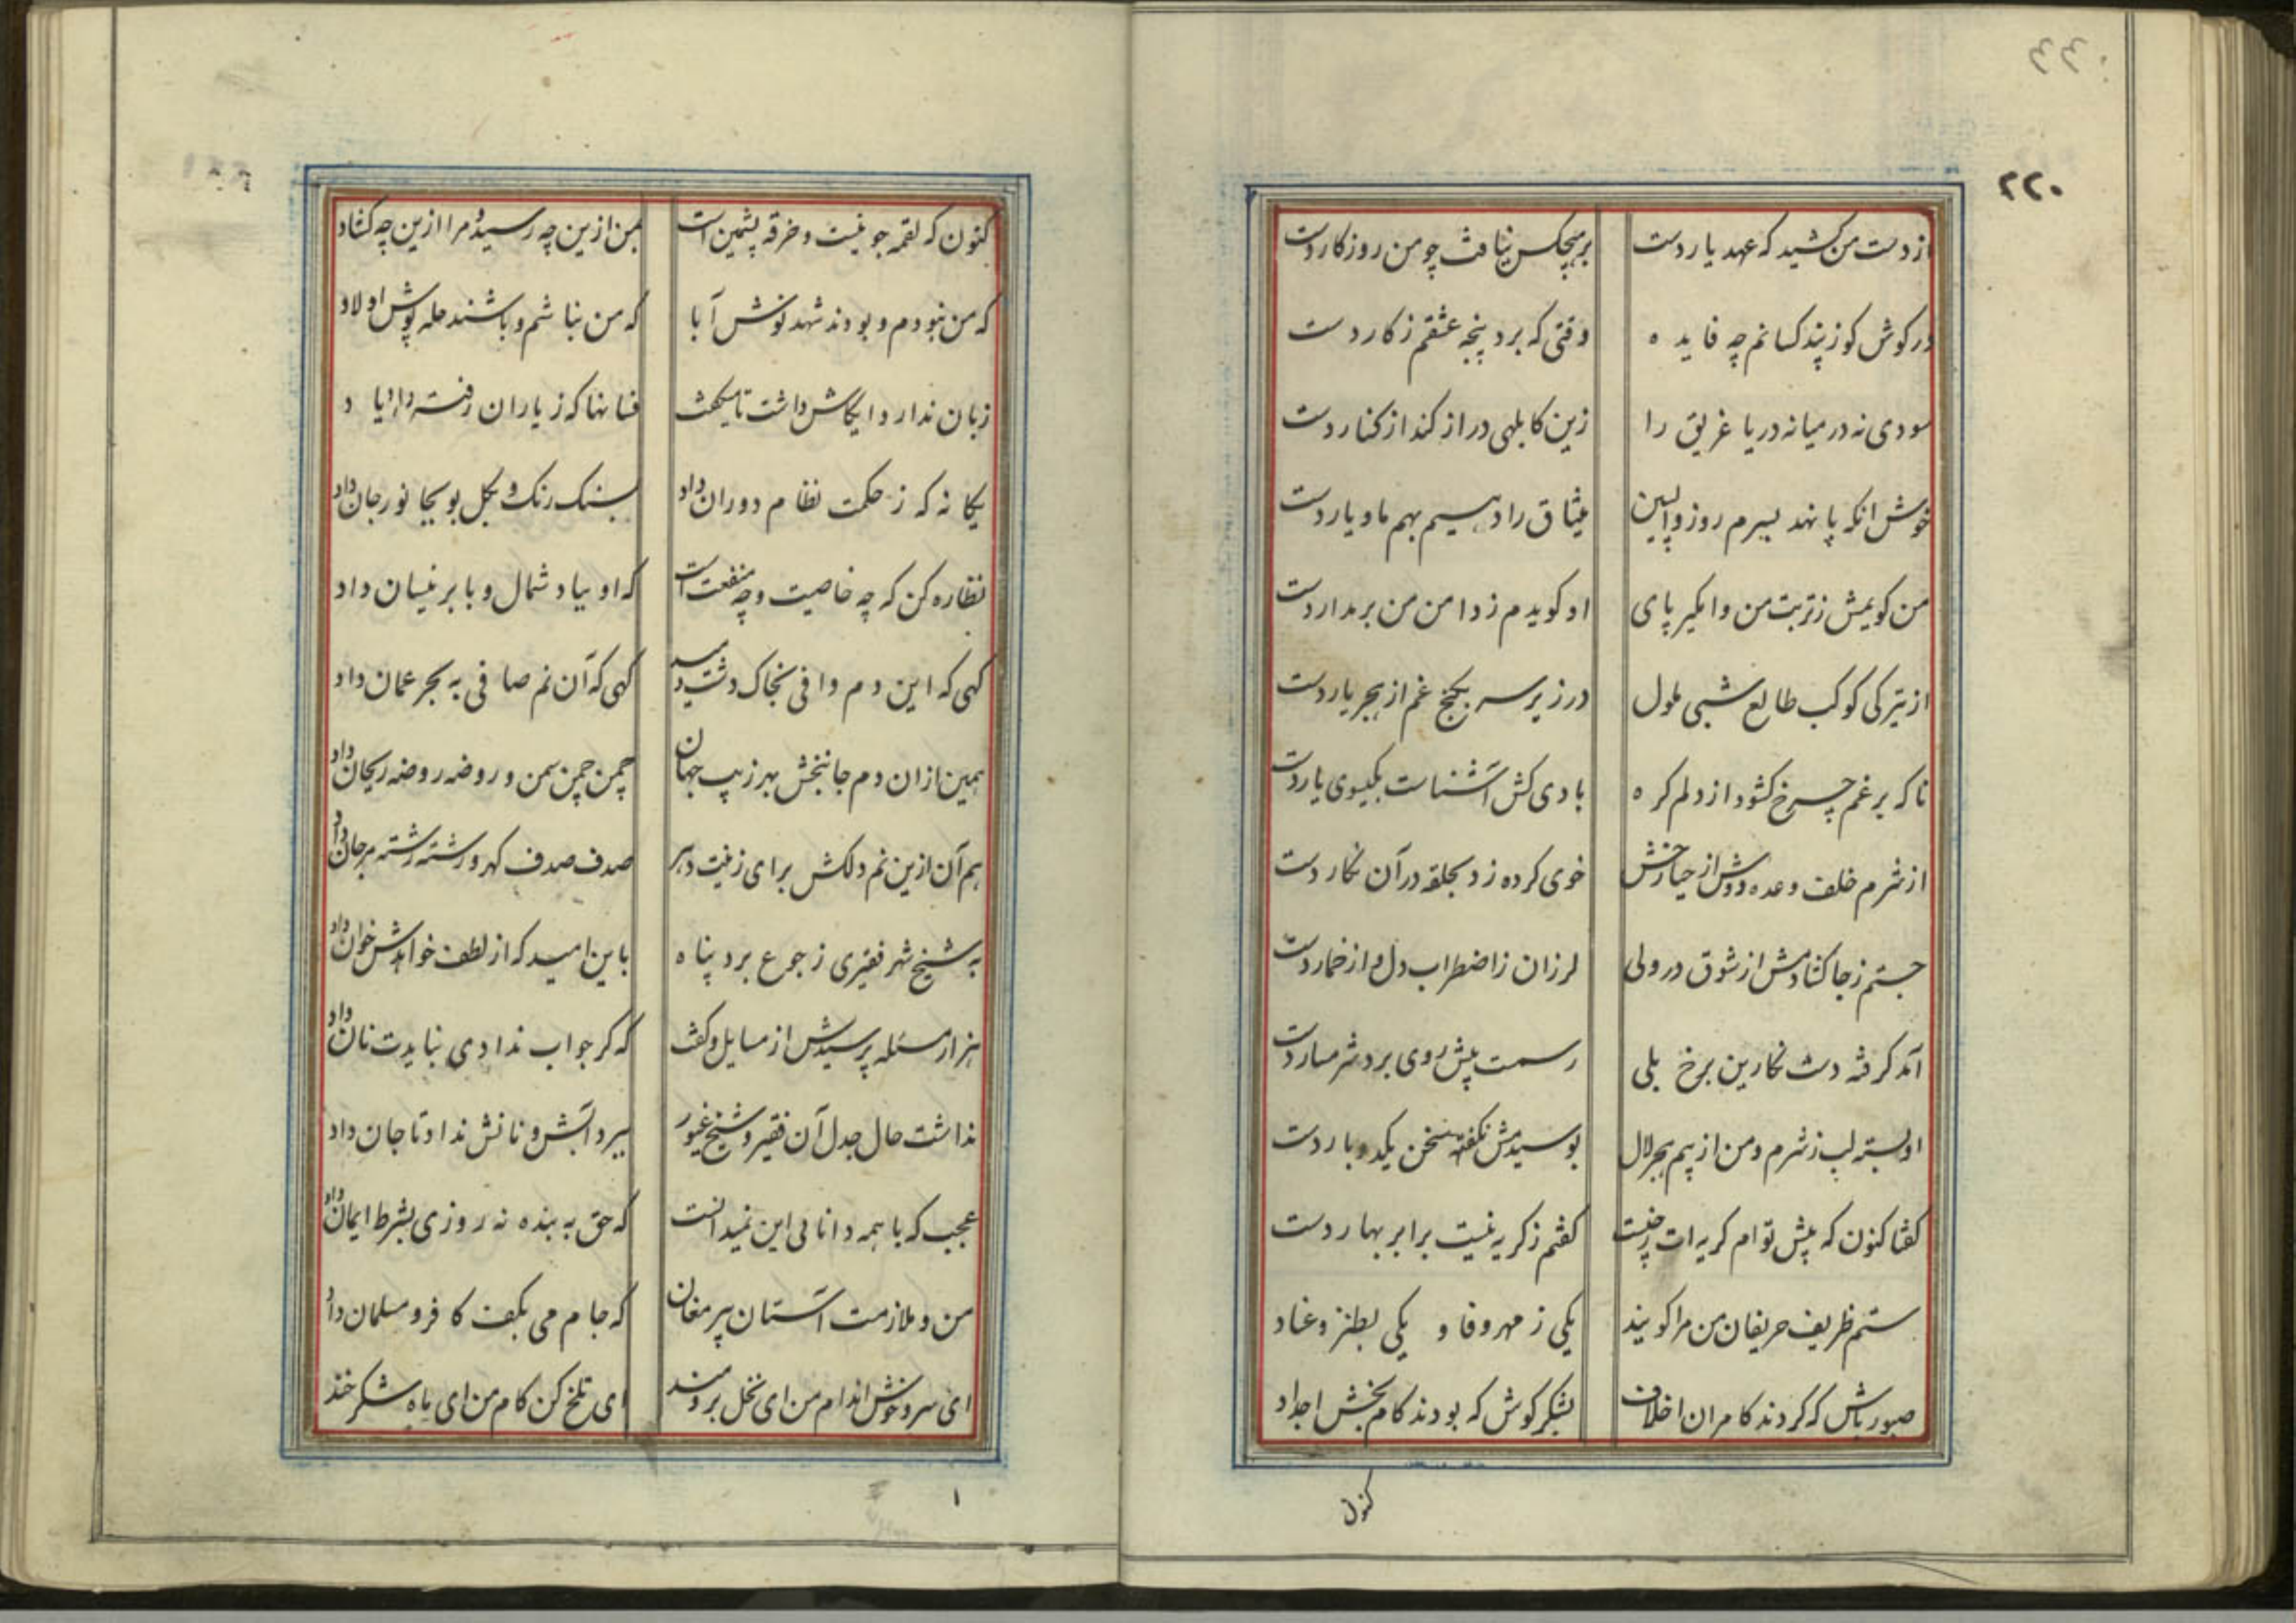 ۲۲۰
از دست من کشید که عهد یار دست بر هیچکس نیافت چو من روزکار دست
در کوش کو ز پند کسانم چه فایده وقتی که برد پنجه عشقم ز کار دست
سودی نه در میانه دریا غریق را زین کابلهی دراز کند از کنار دست
خوش انکه پا نهد بسرم روز واپسین میثاق را دهیم بهم ما و یار دست
من کویمش ز تربت من وامکیر پای او کویدم ز دامن من برمدار دست
از تیرکی کوکب طالع شبی ملول در زیر سر بکنج غم از هجر یار دست
ناکه برغم چرخ کشود از دلم کره بادی کش آشناست بکیسوی یار دست
از شرم خلف وعده دوش از حیا رخش خوی کرده زد بحلقه در آن نکار دست
جستم ز جا کشادمش از شوق در ولی لرزان ز اضطراب دل و از خمار دست
آمد کرفته دست نکارین برخ بلی رسمست پیش روی برد شرمسار دست
او بسته لب ز شرم و من از بیم هجر لال بوسیدمش نکفته سخن یکدو بار دست
کفتا کنون که پیش توام کریه ات ز چیست کفتم ز کریه نیست برابر بهار دست
ستم ظریف حریفان من مرا کویند یکی ز مهر و فا و یکی بطنز و عناد
صبور باش که کردند کامران اخلاف بشکر کوش که بودند کام بخش اجداد
کنون
کنون که لقمه جو نیست و خرقه پشمین است بمن ازین چه رسید و مرا ازین چه کشاد
که من نبودم و بودند شهد نوش آبا که من نباشم و باشند حله پوش اولاد
زبان ندارد و ایکاش داشت تا میکفت فسانها که ز یاران رفته دارد یاد
یکانه که ز حکمت نظام دوران داد بسنک رنک و بکل بو بجانور جان داد
نظاره کن که چه خاصیت و چه منفعت است که او بباد شمال و بابر نیسان داد
کهی که این دم وافی بخاک دشت دمید کهی که آن نم صافی به بحر عمان داد
همین ازان دم جانبخش بهر زیب جهان چمن چمن سمن و روضه روضه ریحان داد
هم آن ازین نم دلکش برای زینت دهر صدف صدف کهر و رشته رشته مرجان داد
به شیخ شهر فقیری ز جوع برد پناه باین امید که از لطف خواهدش خوان داد
هزار مسئله پرسیدش از مسایل و کفت که کر جواب ندادی نبایدت نان داد
نداشت حال جدل آن فقیر و شیخ غیور ببرد آبش و نانش نداد تا جان داد
عجب که با همه دانائی این نمیدانست که حق به بنده نه روزی بشرط ایمان داد
من و ملازمت آستان پیر مغان که جام می بکف کافر و مسلمان داد
ای سرو خوش اندام من ای نخل برومند ای تلخ کن کام من ای ماه شکرخند
۱